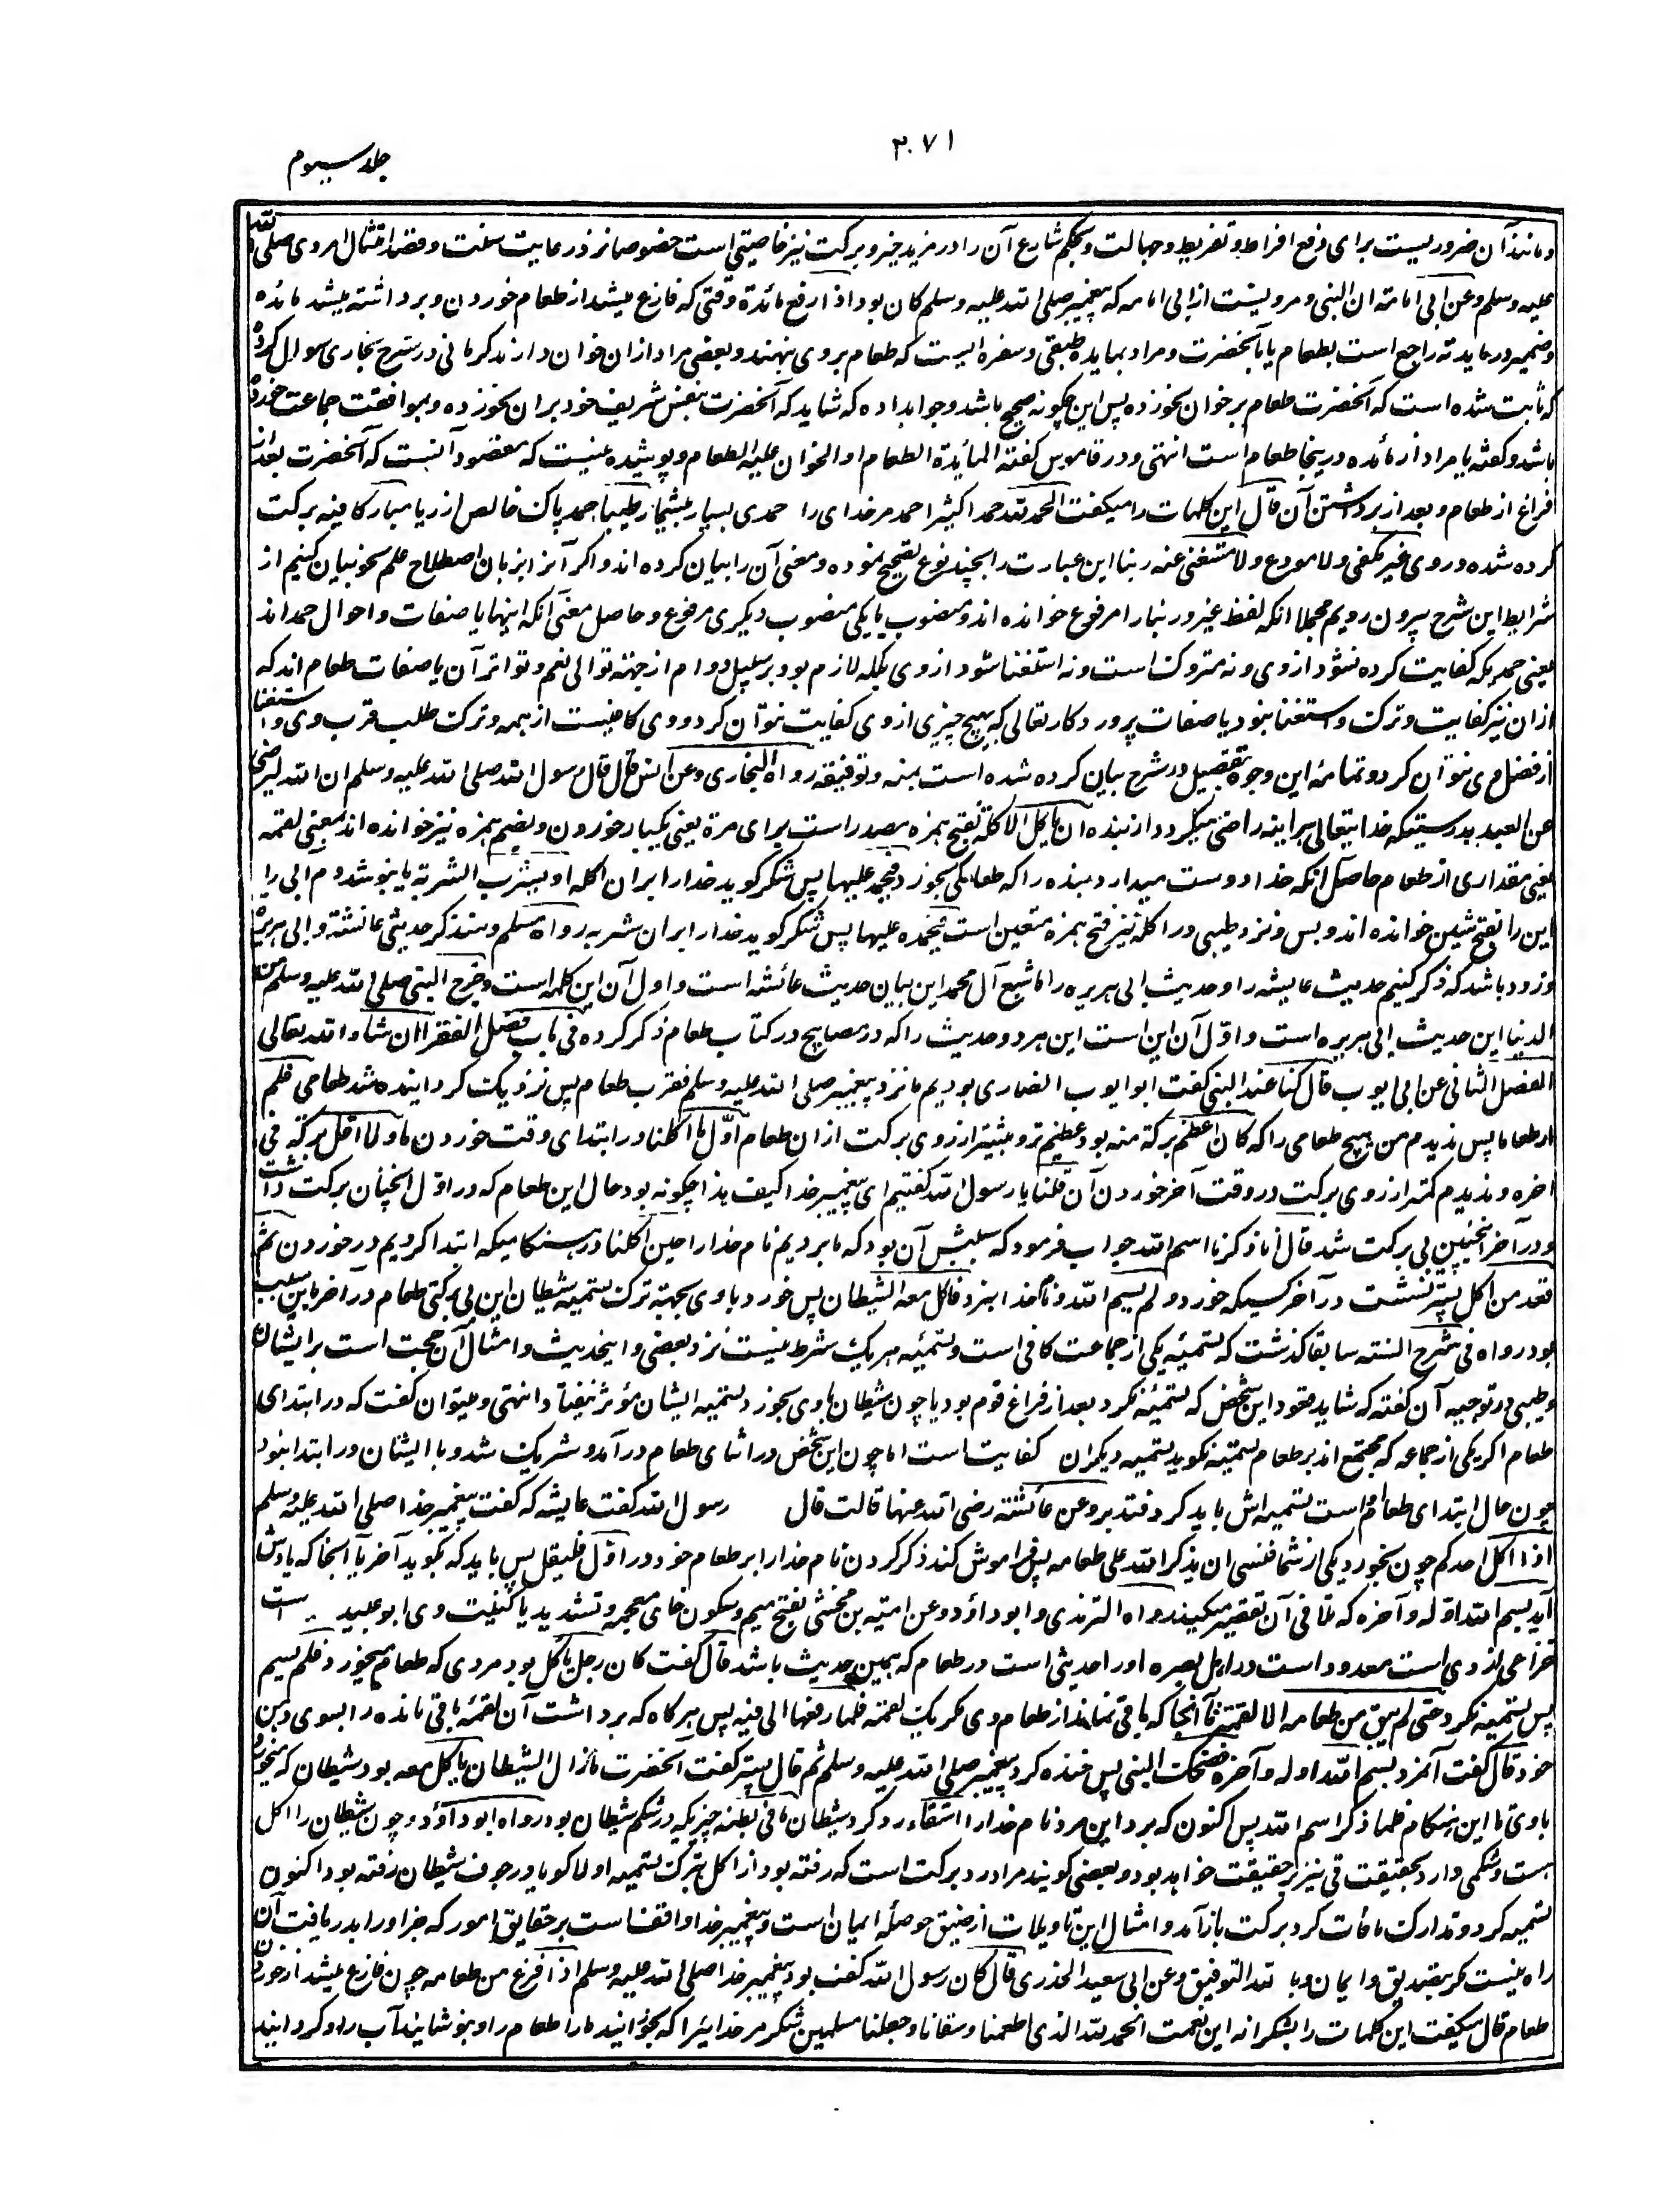 جلد سیوم
۳۰۷۱
و مانند آن ضروریست برای دفع افراط و تفریط و جهالت و بحکم شارع آن را در مزید خیر و برکت نیز خاصیتی است خصوصا نزد رعایت سنت و قصد امتثال امر وی صلی الله
علیه وسلم وعن ابی امامة ان النبی و مرویست از ابی امامه که پیغمبر صلی الله علیه وسلم کان بود اذا رفع مائدة وقتی که فارغ میشد از طعام خوردن و برداشته میشد مائده
و ضمیر در مایدته راجع است بطعام یا بآنحضرت و مراد بمایده طبقی و سفره ایست که طعام بروی بنهند و بعضی مراد ازان خوان دارند کرمانی در شرح بخاری سوال کرده
که ثابت شده است که آنحضرت طعام بر خوان نخورده پس این چگونه صحیح باشد و جواب داده که شاید که آنحضرت بنفس شریف خود بران نخورده و بموافقت جماعت خورده
باشد و گفته یا مراد از مائده درینجا طعام است انتهی و در قاموس گفته المایدة الطعام او الخوان علیه الطعام و پوشیده نیست که مقصود آنست که آنحضرت بعد از
فراغ از طعام و بعد از برداشتن آن قال این کلمات را میگفت الحمد لله حمدا کثیرا حمد مر خدای را حمدی بسیار بیشمار طیبا حمد پاک خالص از ریا مبارکا فیه برکت
کرده شده در وی غیر مکفی ولا مودع ولا مستغنی عنه ربنا این عبارت را بچند نوع تصحیح نموده و معنی آن را بیان کرده اند و اگر آنرا بزبان اصطلاح علم نحو بیان کنیم از
شرایط این شرح بیرون رویم مجملا انکه لفظ غیر و ربنا را مرفوع خوانده اند و منصوب یا یکی منصوب دیگری مرفوع و حاصل معنی آنکه اینها یا صفات و احوال حمد اند
یعنی حمدیکه کفایت کرده نشود از وی و نه متروک است و نه استغنا شود از وی بلکه لازم بود بر سبیل دوام از جهته توالی نعم و تواتر آن یا صفات طعام اند که
ازان نیز کفایت و ترک و استغنا نبود یا صفات پروردگار تعالی که هیچ چیزی از وی کفایت نتوان کرد و وی کافیست از همه و ترک طلب قرب وی و استغنا
از فضل وی نتوان کرد و تمامه این وجوه بتفصیل در شرح بیان کرده شده است بمنه و توفیقه رواه البخاری وعن انس قال قال رسول الله صلی الله علیه وسلم ان الله لیرضی
عن العبد بدرستیکه خدایتعالی هرآینه راضی میگردد از بنده ان یاکل الاکلة بفتح همزه مصدر است برای مرة یعنی یکبار خوردن و بضم همزه نیز خوانده اند بمعنی لقمه
یعنی مقداری از طعام حاصل انکه خدا دوست میدارد بنده را که طعامکی بخورد فیحمده علیها پس شکر گوید خدا را بران اکله او یشرب الشربة یا بنوشد دم آبی را
این را بفتح شین خوانده اند و بس و نزد طیبی در اکله نیز فتح همزه متعین است فیحمده علیها پس شکر گوید خدا را بران شربه رواه مسلم وسنذکر حدیثی عائشة وابی هریرة
و زود باشد که ذکر کنیم حدیث عایشه را و حدیث ابی هریره را ما شبع آل محمد این بیان حدیث عائشه است و اول آن این کلمه است و خرج النبی صلی الله علیه وسلم من
الدنیا این حدیث ابی هریره است و اول آن این است این هر دو حدیث را که در مصابیح در کتاب طعام ذکر کرده فی باب فضل الفقراء ان شاء الله تعالی
الفصل الثانی عن ابی ایوب قال کنا عند النبی گفت ابو ایوب انصاری بودیم ما نزد پیغمبر صلی الله علیه وسلم فقرب طعام پس نزدیک گردانیده شد طعامی فلم
ار طعاما پس ندیدم من هیچ طعامی را که کان اعظم برکة منه بود عظیم تر و بیشتر از روی برکت ازان طعام اول ما اکلنا در ابتدای وقت خوردن ما ولا اقل برکة فی
آخره و ندیدم کمتر از روی برکت در وقت آخر خوردن آن قلنا یا رسول الله گفتیم ای پیغمبر خدا کیف هذا چگونه بود حال این طعام که در اول آنچنان برکت داشت
و در آخر اینچنین بی برکت شد قال انا ذکرنا اسم الله جواب فرمود که سببش آن بود که ما بردیم نام خدا را حین اکلنا در هنگامیکه ابتدا کردیم در خوردن ثم
قعد من اکل پستر نشست در آخر کسیکه خورد ولم یسم الله و نام خدا نبرد فاکل معه الشیطان پس خورد با وی بجهته ترک تسمیه شیطان این بی برکتی طعام در آخر باین سبب
بود رواه فی شرح السنة سابقا گذشت که تسمیه یکی از جماعت کافی است و تسمیه هر یک شرط نیست نزد بعضی و این حدیث و امثال آن حجت است برایشان
و طیبی در توجیه آن گفته که شاید قعود این شخص که تسمیه نکرد بعد از فراغ قوم بود یا چون شیطان با وی بخورد تسمیه ایشان مؤثر نیفتاد انتهی و میتوان گفت که در ابتدای
طعام اگر یکی از جماعه که مجتمع اند بر طعام تسمیه نگوید تسمیه دیگران کفایت است اما چون این شخص در اثنای طعام درآمد و شریک شد و با ایشان در ابتدا نبود
چون حال ابتدای طعام است تسمیه اش باید کرد فتدبر وعن عائشة رضی الله عنها قالت قال رسول الله گفت عایشه که گفت پیغمبر خدا صلی الله علیه وسلم
اذا اکل احدکم چون بخورد یکی از شما فنسی ان یذکر الله علی طعامه پس فراموش کند ذکر کردن نام خدا را بر طعام خود در اول فلیقل پس باید که بگوید آخر یا آنجا که یادش
آید بسم الله اوله وآخره که تلافی آن تقصیر میکند رواه الترمذی وابو داؤد وعن امیة بن مخشی بفتح میم و سکون خای معجمه و تشدید یا کنیت وی ابو عبید است
خزاعی ازدی است معدود است در اهل بصره او را حدیثی است در طعام که همین حدیث باشد قال گفت کان رجل یاکل بود مردی که طعام میخورد فلم یسم
پس تسمیه نکرد حتی لم یبق من طعامه الا لقمة تا آنجا که باقی نماند از طعام وی مگر یک لقمه فلما رفعها الی فیه پس هرگاه که برداشت آن لقمه باقی مانده را بسوی دهن
خود قال گفت آنمرد بسم الله اوله وآخره فضحک النبی پس خنده کرد پیغمبر صلی الله علیه وسلم ثم قال پستر گفت آنحضرت ما زال الشیطان یاکل معه بود شیطان که میخورد
با وی تا این هنگام فلما ذکر اسم الله پس اکنون که برد این مرد نام خدا را استقاء رد کرد شیطان ما فی بطنه چیزیکه در شکم شیطان بود رواه ابو داؤد و چون شیطان را اکل
هست و شکمی دارد بحقیقت قی نیز بر حقیقت خواهد بود و بعضی گویند مراد رد برکت است که رفته بود از اکل بترک تسمیه اولا گویا در جوف شیطان رفته بود اکنون
تسمیه کرد و تدارک مافات کرد برکت بازآمد و امثال این تاویلات از ضیق حوصله ایمان است و پیغمبر خدا واقف است بر حقایق امور که جز او را بدریافت آن
راه نیست مگر بتصدیق و ایمان و بالله التوفیق وعن ابی سعید الخدری قال کان رسول الله گفت بود پیغمبر خدا صلی الله علیه وسلم اذا فرغ من طعامه چون فارغ میشد از خوردن
طعام قال میگفت این کلمات را بشکرانه این نعمت الحمد لله الذی اطعمنا وسقانا وجعلنا مسلمین شکر مر خدایرا که بخورانید ما را طعام را و بنوشانید آب را و گردانید